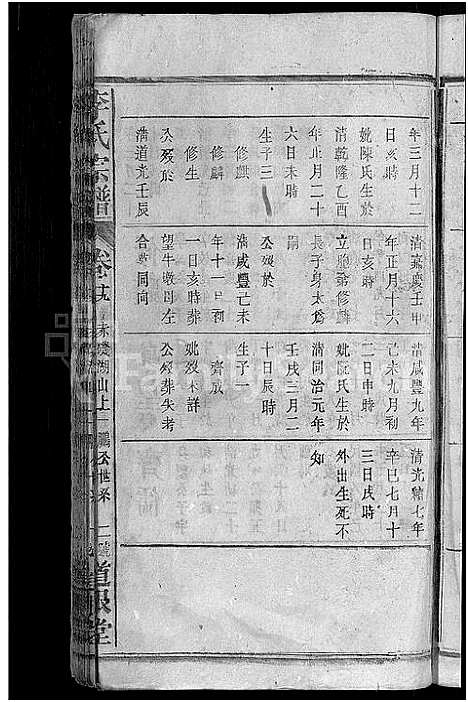 年三月十二
日亥時
妣陳氏生於
清乾隆乙酉
年正月二十
六日未時
生子三
修麒
修麟
修生
公歿於
清道光壬辰
清嘉慶壬申
年正月十六
日亥時
立胞弟修麟
長子身太為
嗣
公歿於
清咸豐己未
年十一月初
一日亥時葬
望牛墩母左
合墓同向
清咸豐九年
己未九月初
二日申時
妣阮氏生於
清同治元年
壬戌三月二
十日辰時
生子一
齊成
妣歿未詳
公歿葬失考
清光緒七年
辛巳七月十
三日戌時
外出生死不
知
李氏宗譜
湖山上
公世系